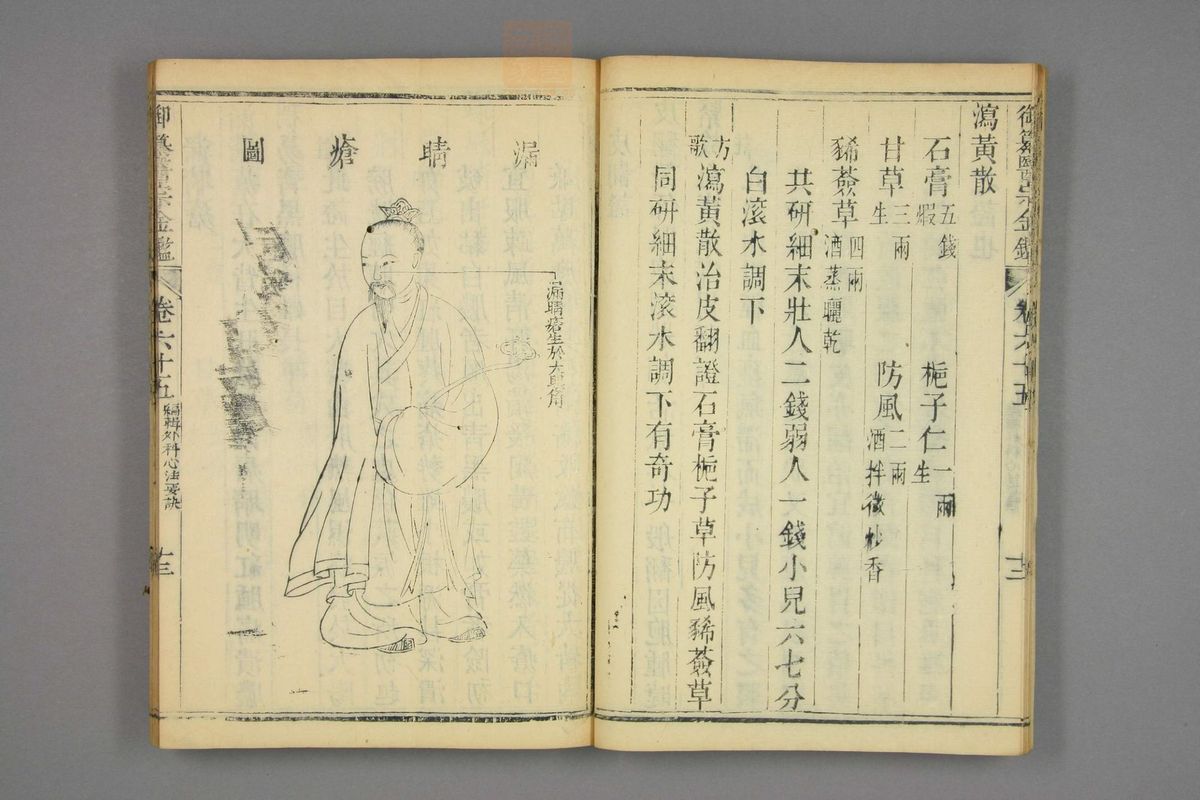 御纂醫宗金鑑
瀉黃散
石膏五錢煅 梔子仁一兩生
甘草三兩生 防風二兩酒拌微炒香
豨薟草四兩酒蒸曬乾
共研細末壯人二錢弱人一錢小兒六七分
白滾水調下
方歌 瀉黃散治皮翻證石膏梔子草防風豨薟草
同研細末滾水調下有奇功
漏睛瘡圖
漏睛瘡生於大眥角
御纂醫宗金鑑 卷六十五 編輯外科心法要訣 十三